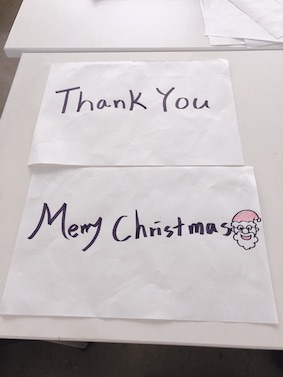 Thank You
Merry Christmas